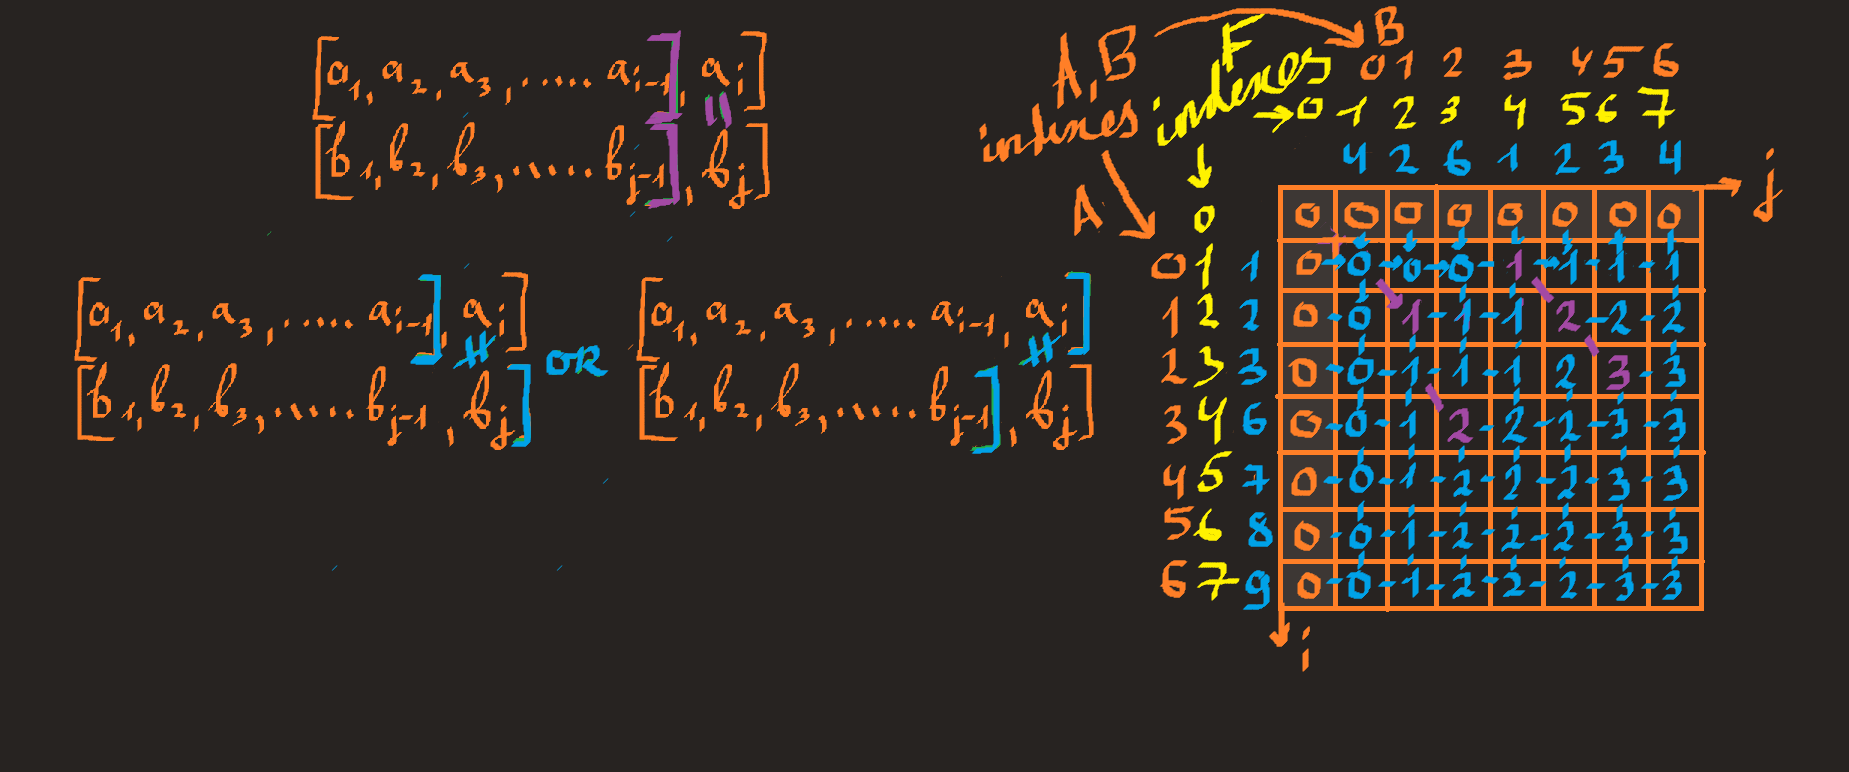 [a₁, a₂, a₃, ..... aᵢ₋₁], aᵢ]
=
[b₁, b₂, b₃, ...... bⱼ₋₁], bⱼ]
[a₁, a₂, a₃, ..... aᵢ₋₁], aᵢ]
≠
[b₁, b₂, b₃, ...... bⱼ₋₁, bⱼ]
OR
[a₁, a₂, a₃, ..... aᵢ₋₁, aᵢ]
≠
[b₁, b₂, b₃, ...... bⱼ₋₁], bⱼ]
A,B
indexes
F
indexes
B
0 1 2 3 4 5 6
0 1 2 3 4 5 6 7
4 2 6 1 2 3 4
j
A
0 0 0 0 0 0 0 0 0
0 1 1 0 0 0 0 1 1 1 1
1 2 2 0 0 1 1 1 2 2 2
2 3 3 0 0 1 1 1 2 3 3
3 4 6 0 0 1 2 2 2 3 3
4 5 7 0 0 1 2 2 2 3 3
5 6 8 0 0 1 2 2 2 3 3
6 7 9 0 0 1 2 2 2 3 3
i